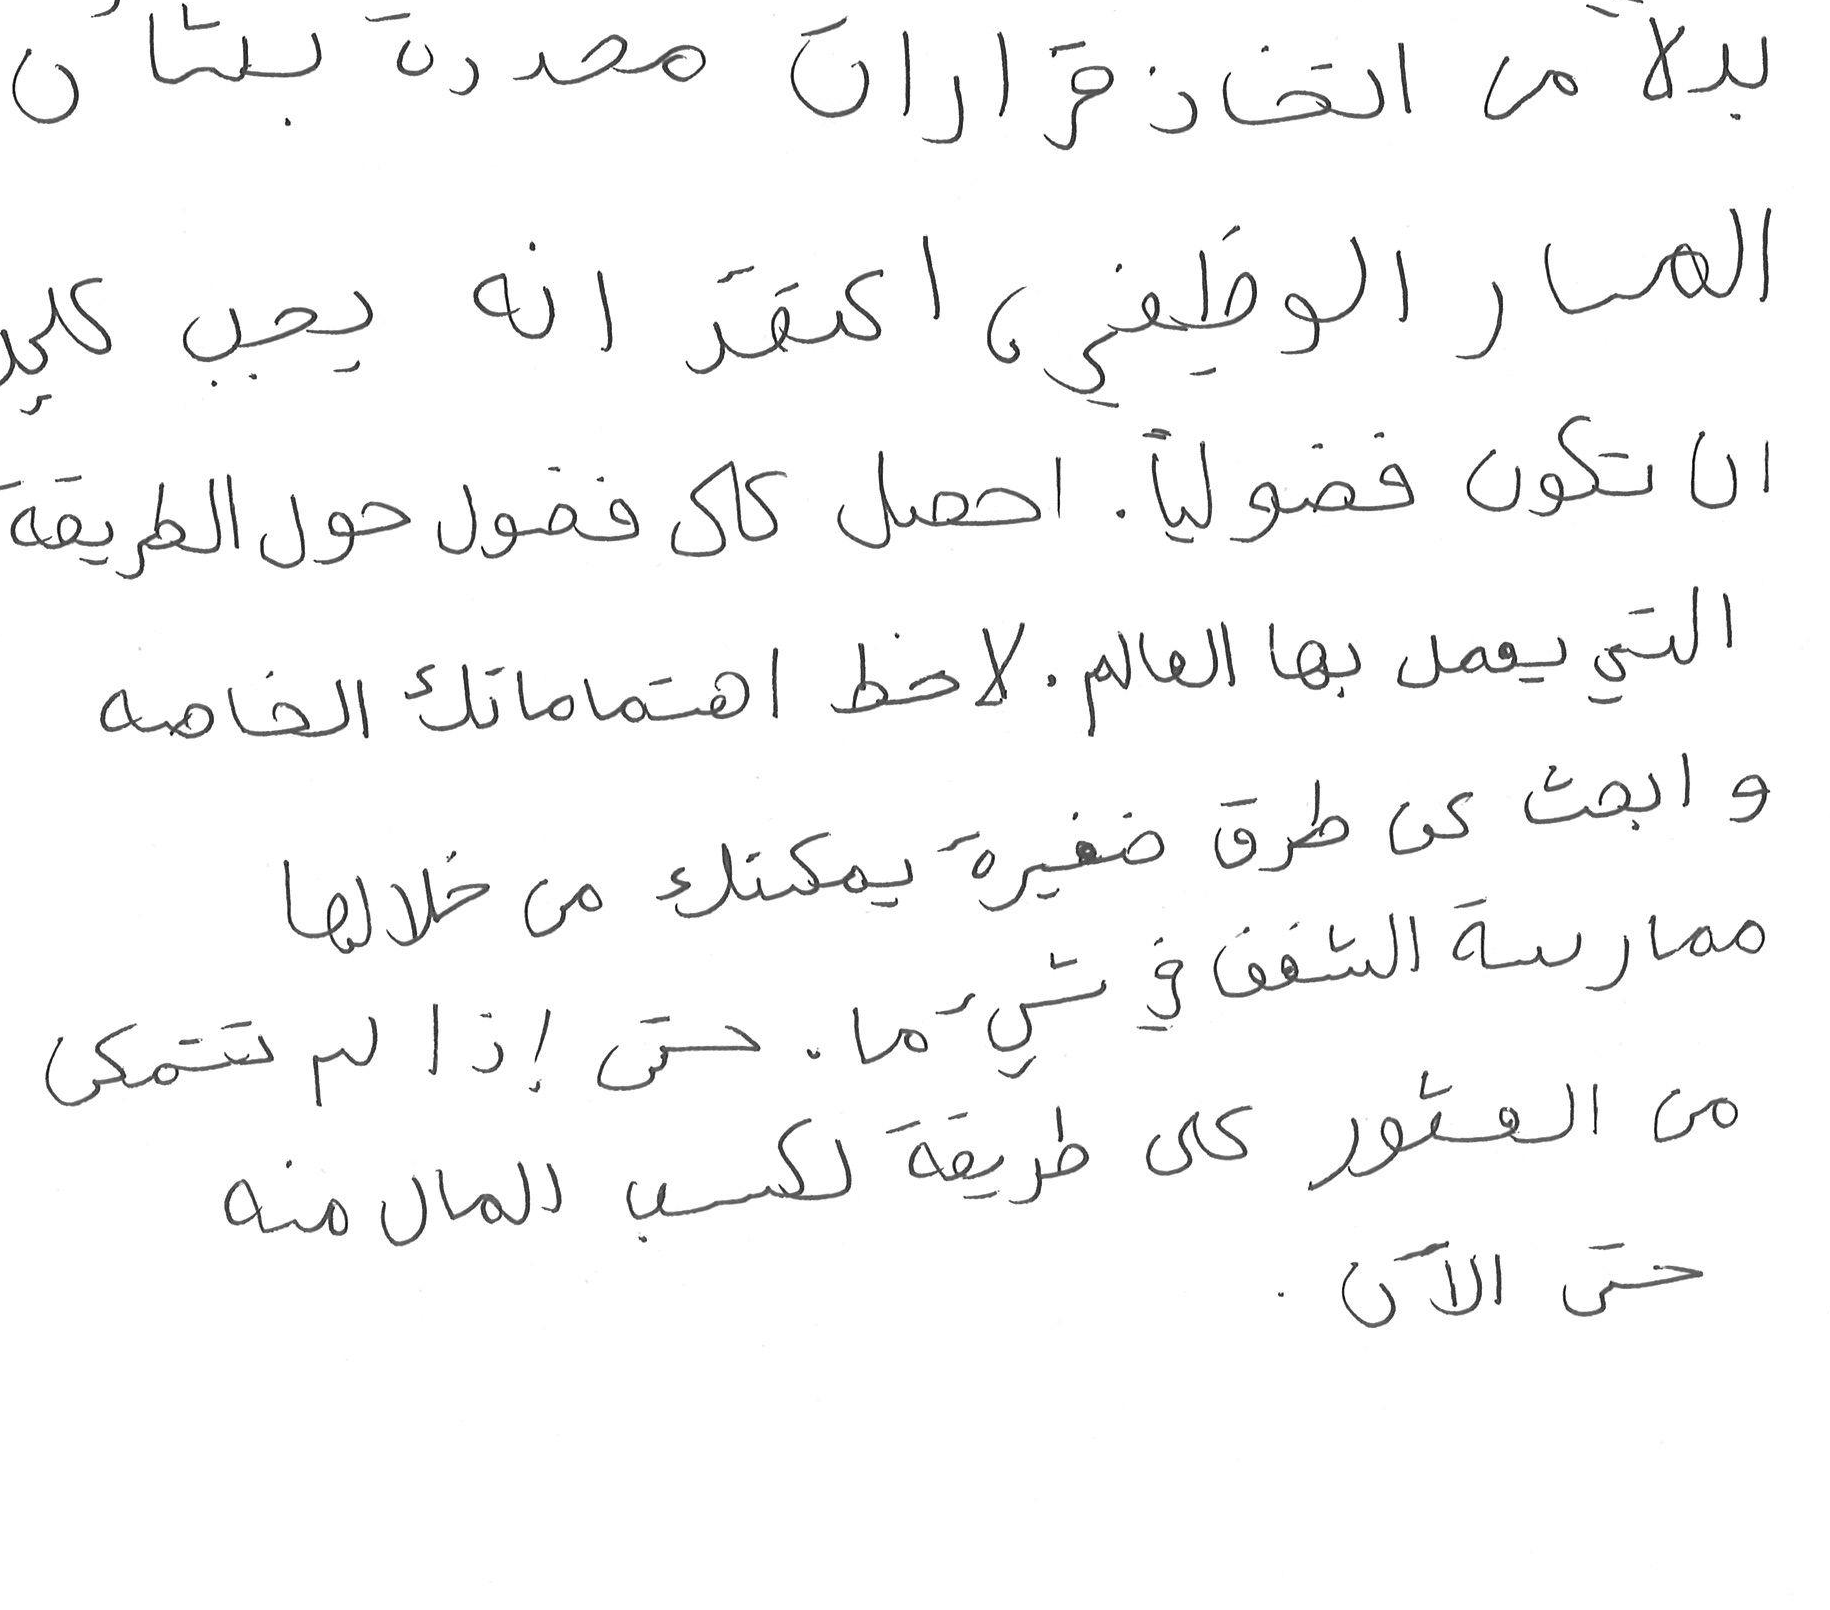 بدلاً من اتخاذ قرارات محددة بشأن
المسار الوظيفي، اعتقد انه يجب عليك
ان تكون فضولياً. احصل على فضول حول الطريقة
التي يعمل بها العالم. لاحظ اهتماماتك الخاصه
و ابحث عن طرق صغيرة يمكنك من خلالها
ممارسة الشغف في شيء ما. حتى إذا لم تتمكن
من العثور على طريقة لكسب المال منه
حتى الآن.